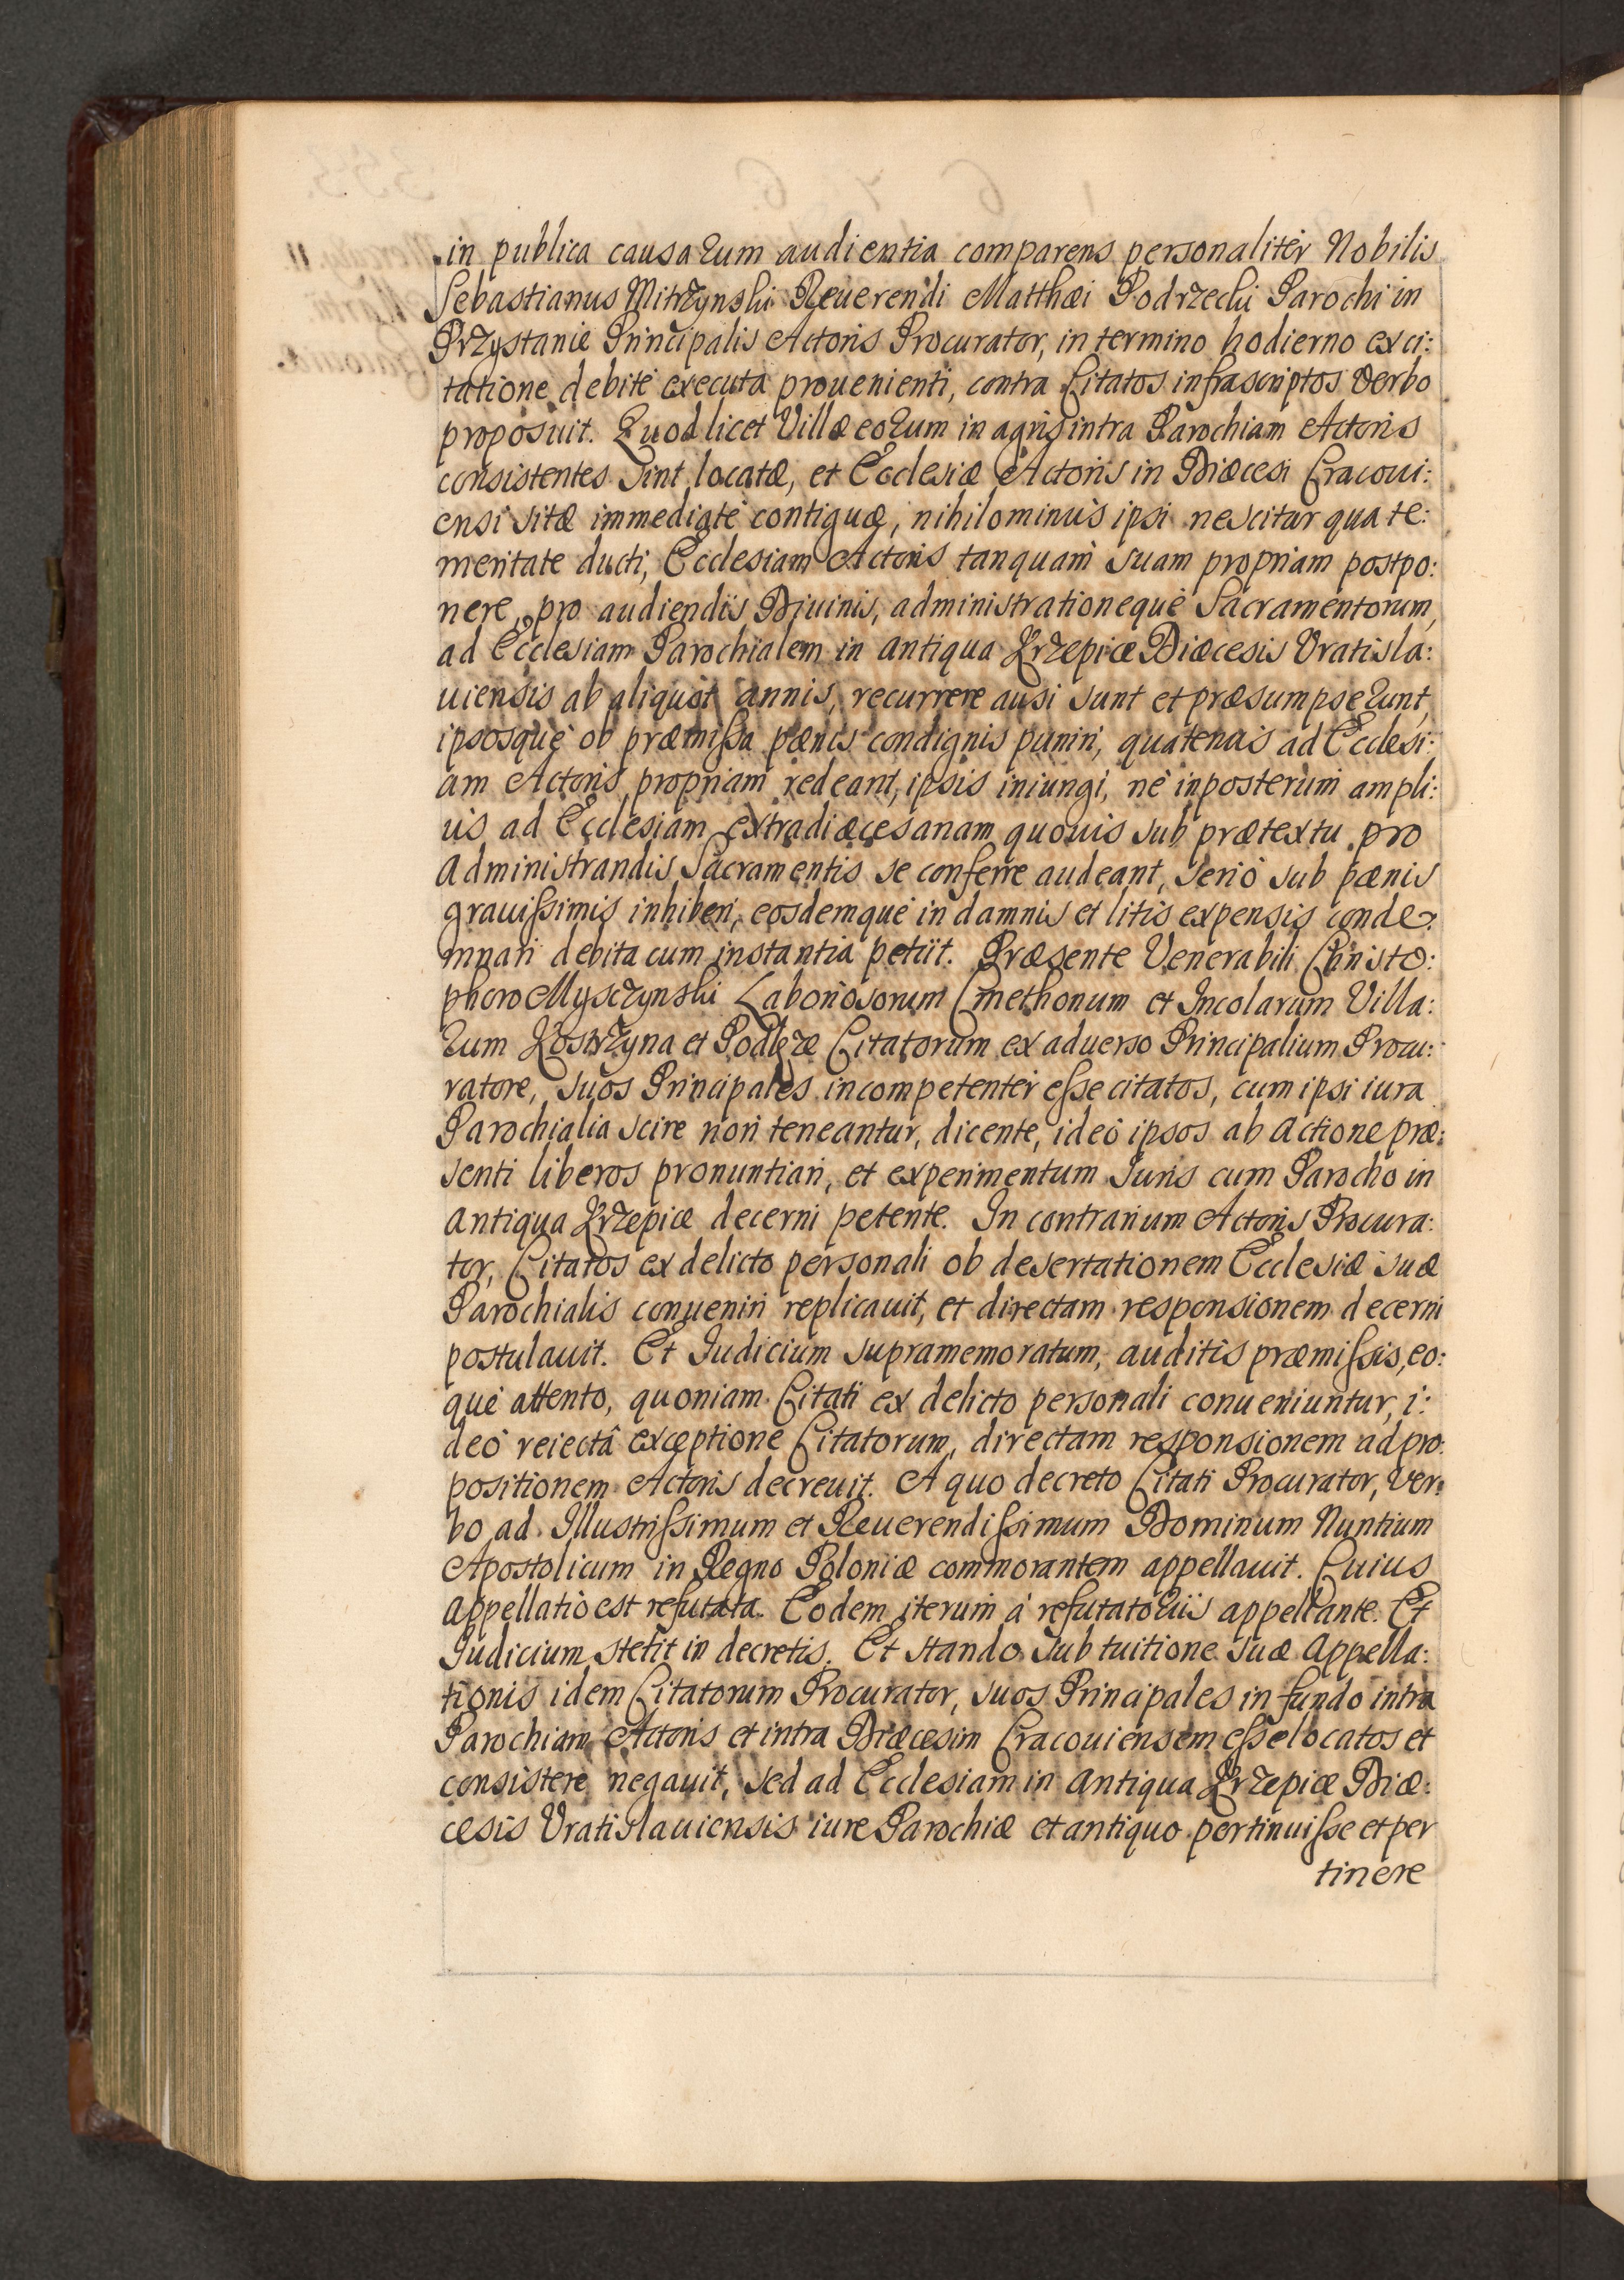 in publica causarum audientia comparens personalitèr Nobilis
Sebastianus Mitrzynski Reuerendi Matthæi Podrzecki Parochi in
Przystanie Principalis Actoris Procurator, in termino hodierno ex ci:
tatione debitè executa prouenienti, contra Citatos infrascriptos verbo
proposuit. Quod licet Villæ eorum in agris intra Parochiam Actoris
consistentes sint locatæ, et Ecclesiæ Actoris in Diæcesi Cracoui:
ensi sitæ immediatè contiguæ, nihilominùs ipsi nescitur qua te:
meritate ducti, Ecclesiam Actoris tanquam suam propriam postpo:
nere, pro audiendis Diuinis, administrationequè Sacramentorum,
ad Ecclesiam Parochialem in antiqua Krzepicæ Diæcesis Vratisla:
uiensis ab aliquot annis, recurrere ausi sunt et præsumpserunt,
ipsosquè ob præmissa pænis condignis puniri, quatenus ad Ecclesi:
am Actoris propriam redeant, ipsis iniungi, nè inposterum ampli:
us ad Ecclesiam extradiæcesanam quouis sub prætextu pro
Administrandis Sacramentis se conferre audeant, seriò sub pænis
grauissimis inhiberi, eosdemquè in damnis et litis expensis conde:
mnari debita cum instantia petiit. Præsente Venerabili Christo:
phoro Mysczynski Laboriosorum Cmethonum et Incolarum Villa:
rum Kostrzyna et Podlęze Citatorum ex aduerso Principalium Procu:
ratore, suos Principales incompetentèr esse citatos, cum ipsi iura
Parochialia scire non teneantur, dicente, ideò ipsos ab actione præ:
senti liberos pronuntiari, et experimentum Iuris cum Parocho in
antiqua Krzepicæ decerni petente. In contrarium Actoris Procura:
tor, Citatos ex delicto personali ob desertationem Ecclesiæ suæ
Parochialis conueniri replicauit, et directam responsionem decerni
postulauit. Et Iudicium supramemoratum, auditis præmissis, eo:
què attento, quoniam Citati ex delicto personali conueniuntur, i:
deò reiectâ exceptione Citatorum, directam responsionem ad pro:
positionem Actoris decreuit. A quo decreto Citati Procurator, ver:
bo ad Illustrissimum et Reuerendissimum Dominum Nuntium
Apostolicum in Regno Poloniæ commorantem appellauit. Cuius
appellatio est refutata. Eodem iterum à refutatoriis appellante. Et
Iudicium stetit in decretis. Et stando sub tuitione suæ Appella:
tionis idem Citatorum Procurator, suos Principales in fundo intra
Parochiam Actoris et intra Diæcesim Cracouiensem esse locatos et
consistere negauit, sed ad Ecclesiam in antiqua Krzepicæ Diæ:
cesis Vratislauiensis iure Parochiæ et antiquo pertinuisse et per
tinere